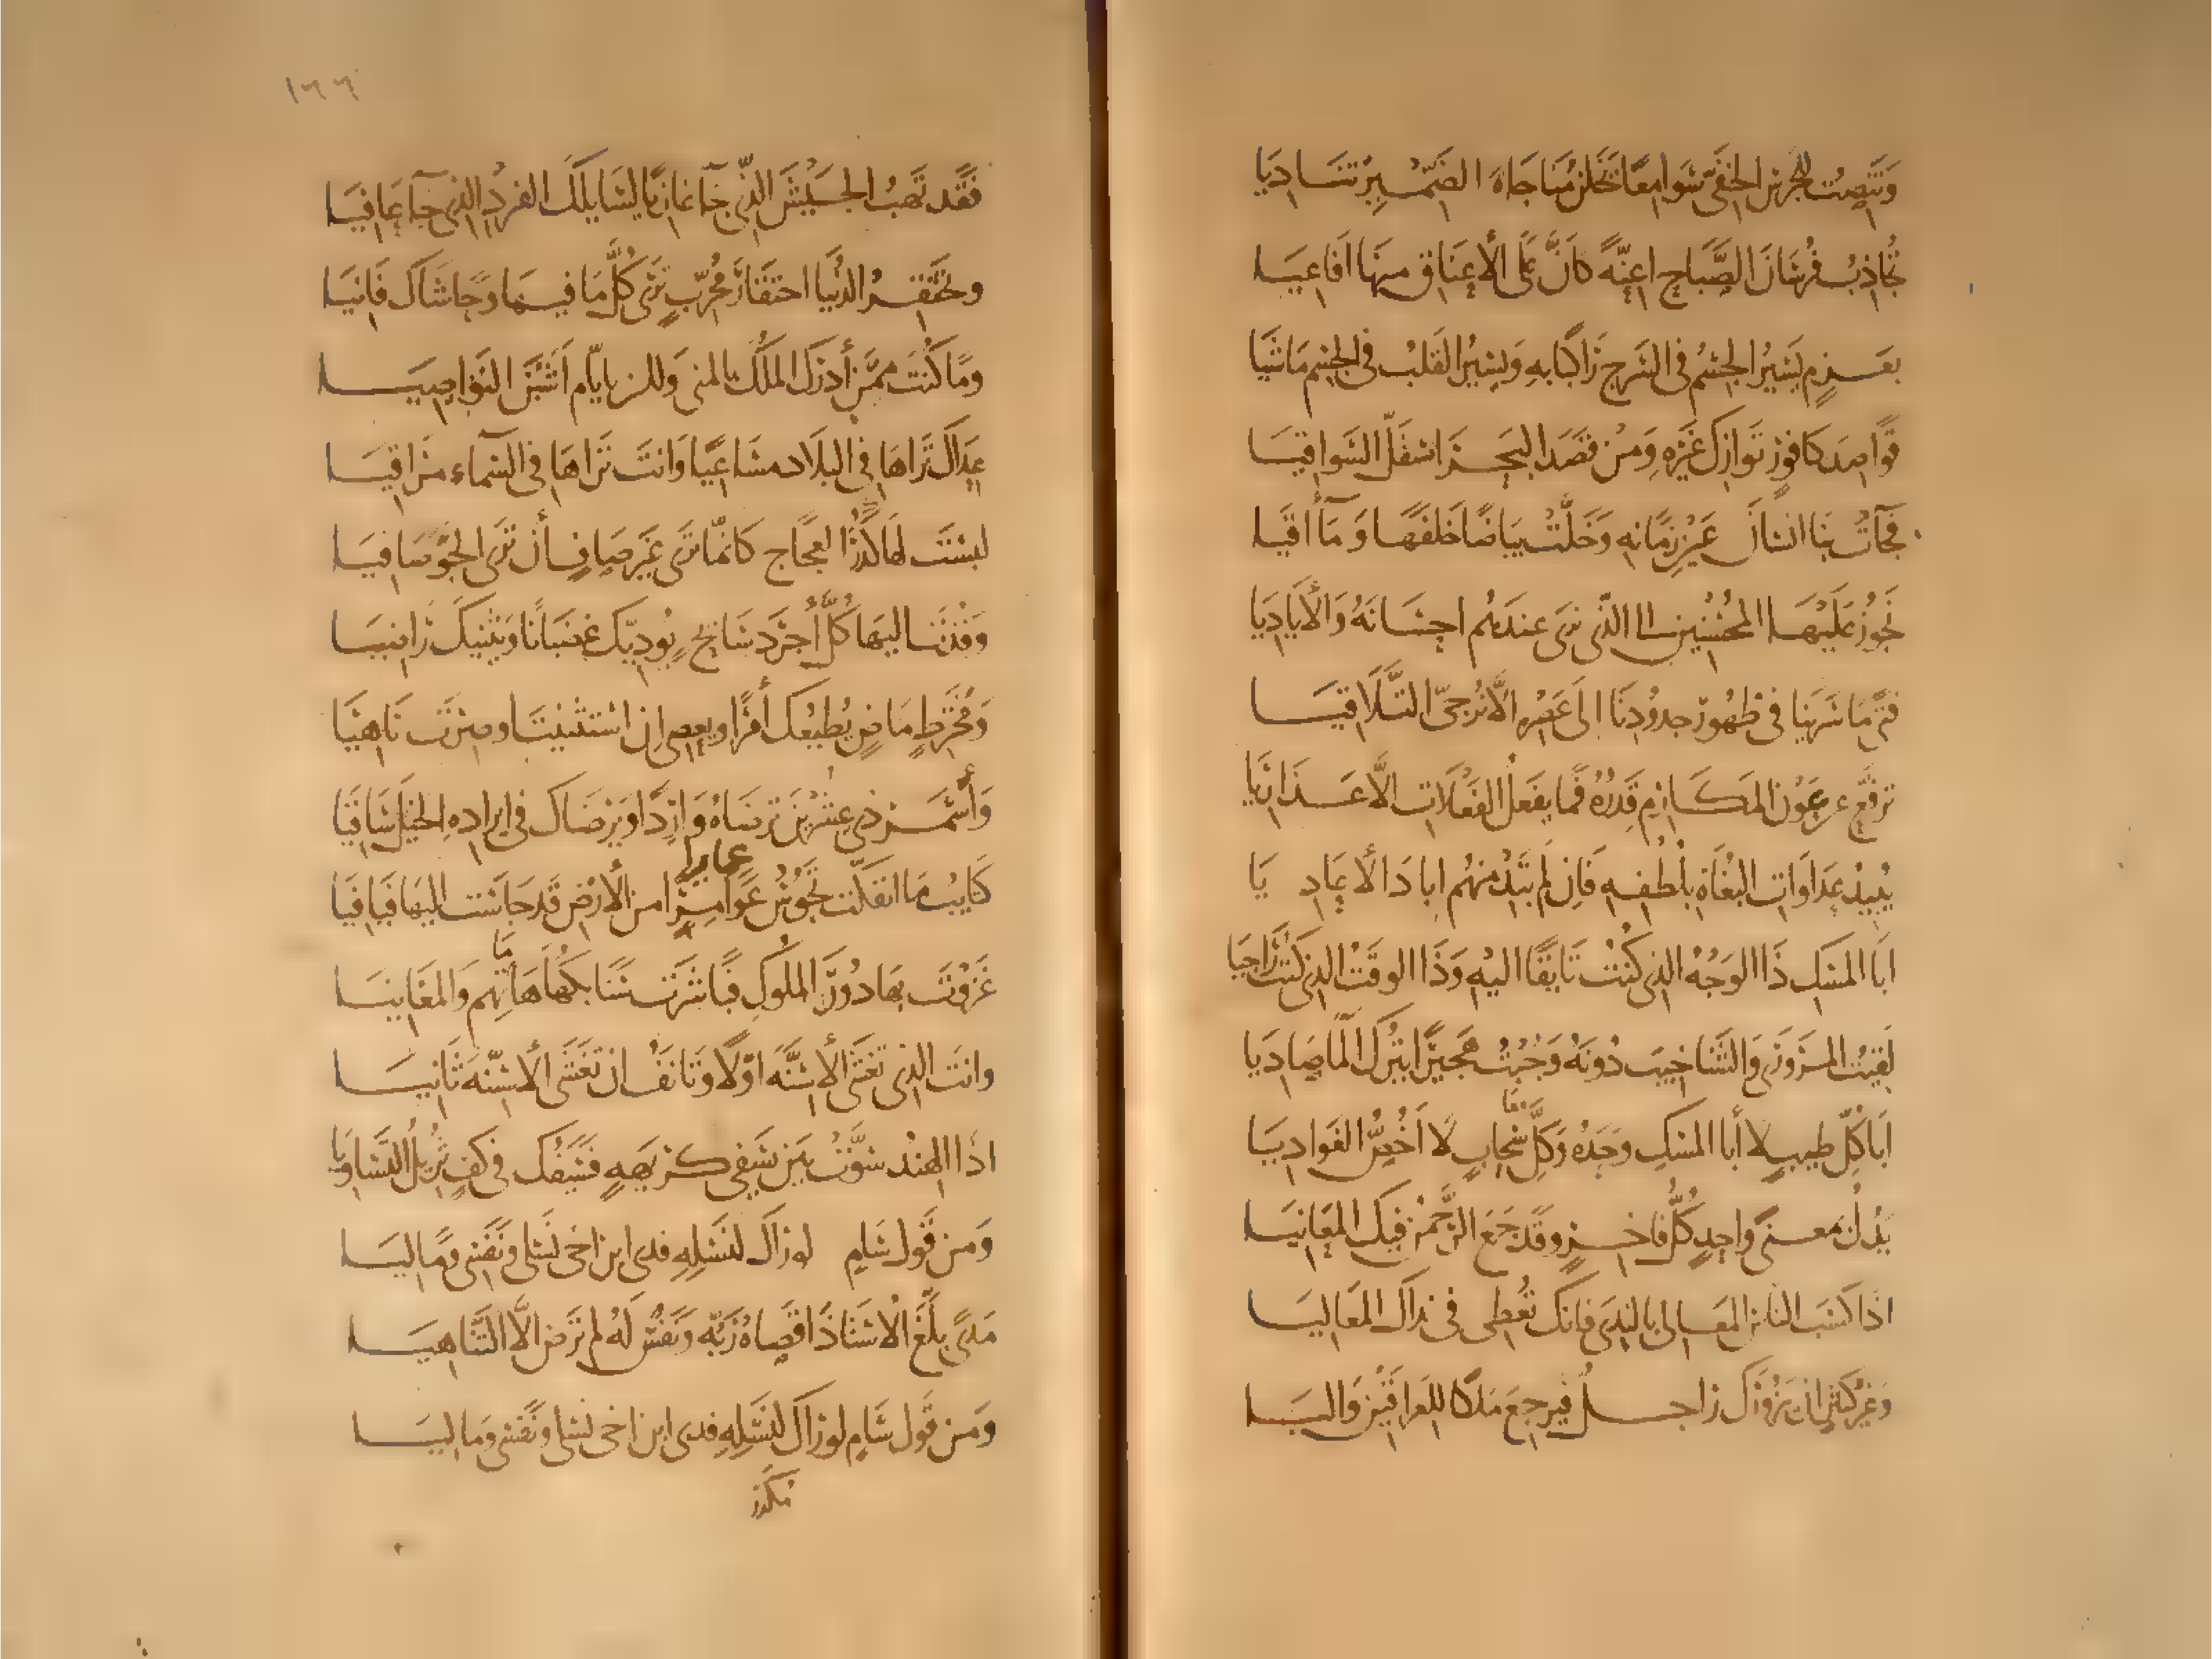 وَتَنصِتُ للجَرسِ الخَفيّ سَوامِعًا تخَلنَ مُنَاجَاةَ الضَّمِيرِ تنَادِيَا
تُجَاذِبُ فُرسَانَ الصَّبَاحِ اعِنَّةً كَانَّ عَلَى الأعنَاقِ منهَا افَاعِيَا
بعَزمٍ يَسِيرُ الجِسْمُ في السَرجِ رَاكِبًا بهِ وَيسِيرُ القلبُ في الجِسْمِ مَاشِيَا
قَواصِدَ كَافورٍ تَوارِكَ غَيرِهِ وَمنْ قصَدَ البَحرَ استقَلّ السَواقيَا
فجَآتْ بنَا انسَانَ عَيْنِ زمَانِهِ وَخَلَّتْ بيَاضًا خَلفَهَا وَمَآقيَا
نَجُوزُ عَلَيْهَا المُحْسِنِينَ الى الذّي نرَى عندَهُم احِسَانَهُ وَالأيَادِيَا
فتىً مَا سَرَينَا في ظُهُورِ جدُودِنَا الى عَصْرِهِ الَّا نُرجّى التَّلَاقيَا
ترَفَّعَ عن عُونِ المَكَارِمِ قَدرُهُ فمَا يفعَلُ الفَعْلَاتِ الَّا عَذَارِيَا
يُبِيدُ عَدَاوَاتِ البُغَاةِ بلُطْفِهِ فَانِ لم تَبِدْ منهُم ابادَ الأعَادِيَا
ابَا المسْكِ ذَا الوَجْهُ الذي كُنْتُ تَايقًا اليْهِ وَذَا الوقتُ الذي كنْتُ رَاجيَا
لَقيتُ المَرَوْرَى وَالشَنَاخِيبَ دُونَهُ وَجُبْتُ هَجيرًا يَتْرُكَ المآ صَادِيَا
ابَا كُلّ طيبٍ لا أبا المسْكِ وحَدَهُ وَكلَّ سَحَابٍ لا اَخُصُّ الغَوادِيَا
يُدِلُّ بمَعنىً واحِدٍ كُلُّ فاخِرٍ وقَد جَمَعَ الرَّحْمنُ فيكَ المعَانيَا
اذَا كسَبَ الناسُ المعَالي بالندَى فانكَ تُعْطِي في ندَاكَ المعَاليَا
وَغَيْرُ كثيرٍ ان يَزُورَكَ رَاجلٌ فَيرجِعَ مَلكًا للعرَاقَيْنِ وَاليَا
١٦٦
فقَد تَهَبُ الجَيْشَ الذّي جَآ غازيًا لسَايلكَ الفردِ الذي جَآ عَافيَا
وتحتَقِرُ الدُنْيَا احتقَارَ مُجَرّبٍ يَرَى كُلَّ مَا فيهَا وَحَاشَاكَ فَانيَا
ومَا كُنْتَ ممَّن أدرَكَ المُلْكَ بالمنى وَلكن بايّامٍ اَشَبْنَ النَوَاصِيَا
عدَاكَ تَرَاهَا في البلَادِ مسَاعيًا وَانتَ تَرَاهَا في السَمآءِ مرَاقيَا
لبسْتَ لهَا كُدْرَ العجَاجِ كانّمَا ترَى غَيرَ صَافٍ أن ترَى الجَوَّ صَافيَا
وَقُدْتَ اليهَا كُلَّ أجْرَدَ سَابحٍ يُودِيكَ غضبَانًا وَيَثنيكَ رَاضيَا
وَمُختَرطٍ مَاضٍ يُطِيعُكَ أمرًا ويعصِي انِ استثنيْتَ او صرْتَ نَاهيَا
وَأسْمَرَ ذي عِشْرينَ ترضَاهُ وَارِدًا وَيَرضَاكَ في ايرادِهِ الخيْلَ سَاقيَا
كَتَايبُ مَا انفكَّتْ تَجُوسُ عَمَايرا من الأرْضِ قَد جَاسَت اليهَا فيَافيَا
غَزَوْتَ بهَا دُورَ المُلُوكِ فبَاشَرَتْ سَنَابكُهَا هَامَاتِهِم وَالمغَانيَا
وانتَ الذي تَغشَى الأسِنَّةَ اوّلًا وَتانَفُ ان تَغشَى الأسِنَّةَ ثَانيَا
اذَا الهنْدُ سَوَّتْ بينَ سَيفَى كَريهَةٍ فسَيْفُكَ في كفٍّ تُزيلُ التسَاويَا
وَمن قَولِ سَامٍ لو رَآكَ لنَسْلهِ فدى ابنِ اخي نسْلى ونَفْسِي ومَاليَا
مَدىً بلّغَ الأسْتَاذَ اقصَاهُ رَبّهِ وَنَفْسٌ لَهُ لم تَرضَ الَّا التَّنَاهيَا
وَمن قَولِ سَامٍ لو رَآكَ لنَسْلهِ فدى ابن اخي نسْلى وَنَفْسى وَمَاليَا
مكرر